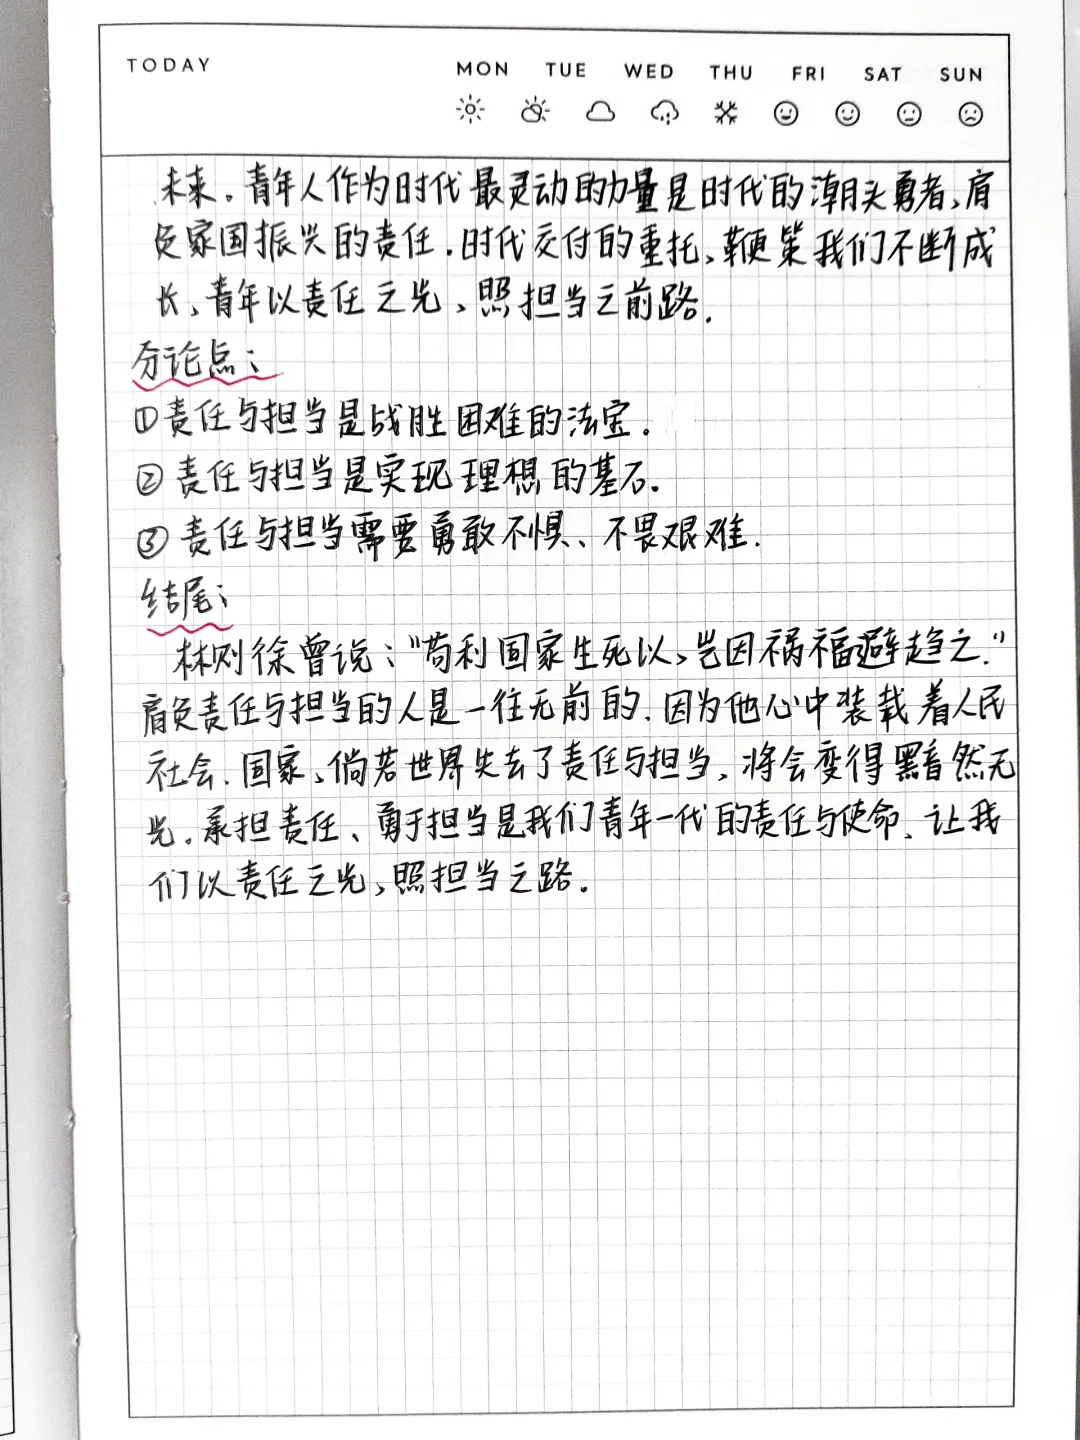 TODAY
MON TUE WED THU FRI SAT SUN
未来。青年人作为时代最灵动的力量是时代的潮头勇者,肩
负家国振兴的责任.时代交付的重托,鞭策我们不断成
长,青年以责任之光,照担当之前路.
分论点:
①责任与担当是战胜困难的法宝.
②责任与担当是实现理想的基石.
③责任与担当需要勇敢不惧、不畏艰难.
结尾:
林则徐曾说:"苟利国家生死以,岂因祸福避趋之."
肩负责任与担当的人是一往无前的.因为他心中装载着人民
社会.国家,倘若世界失去了责任与担当,将会变得黑暗然无
光.承担责任、勇于担当是我们青年一代的责任与使命.让我
们以责任之光,照担当之路.